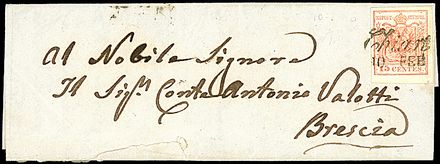 Al Nobile Signore
Il Sig.r Conte Antonio Valotti
Brescia
10 FEB
15 CENTES.